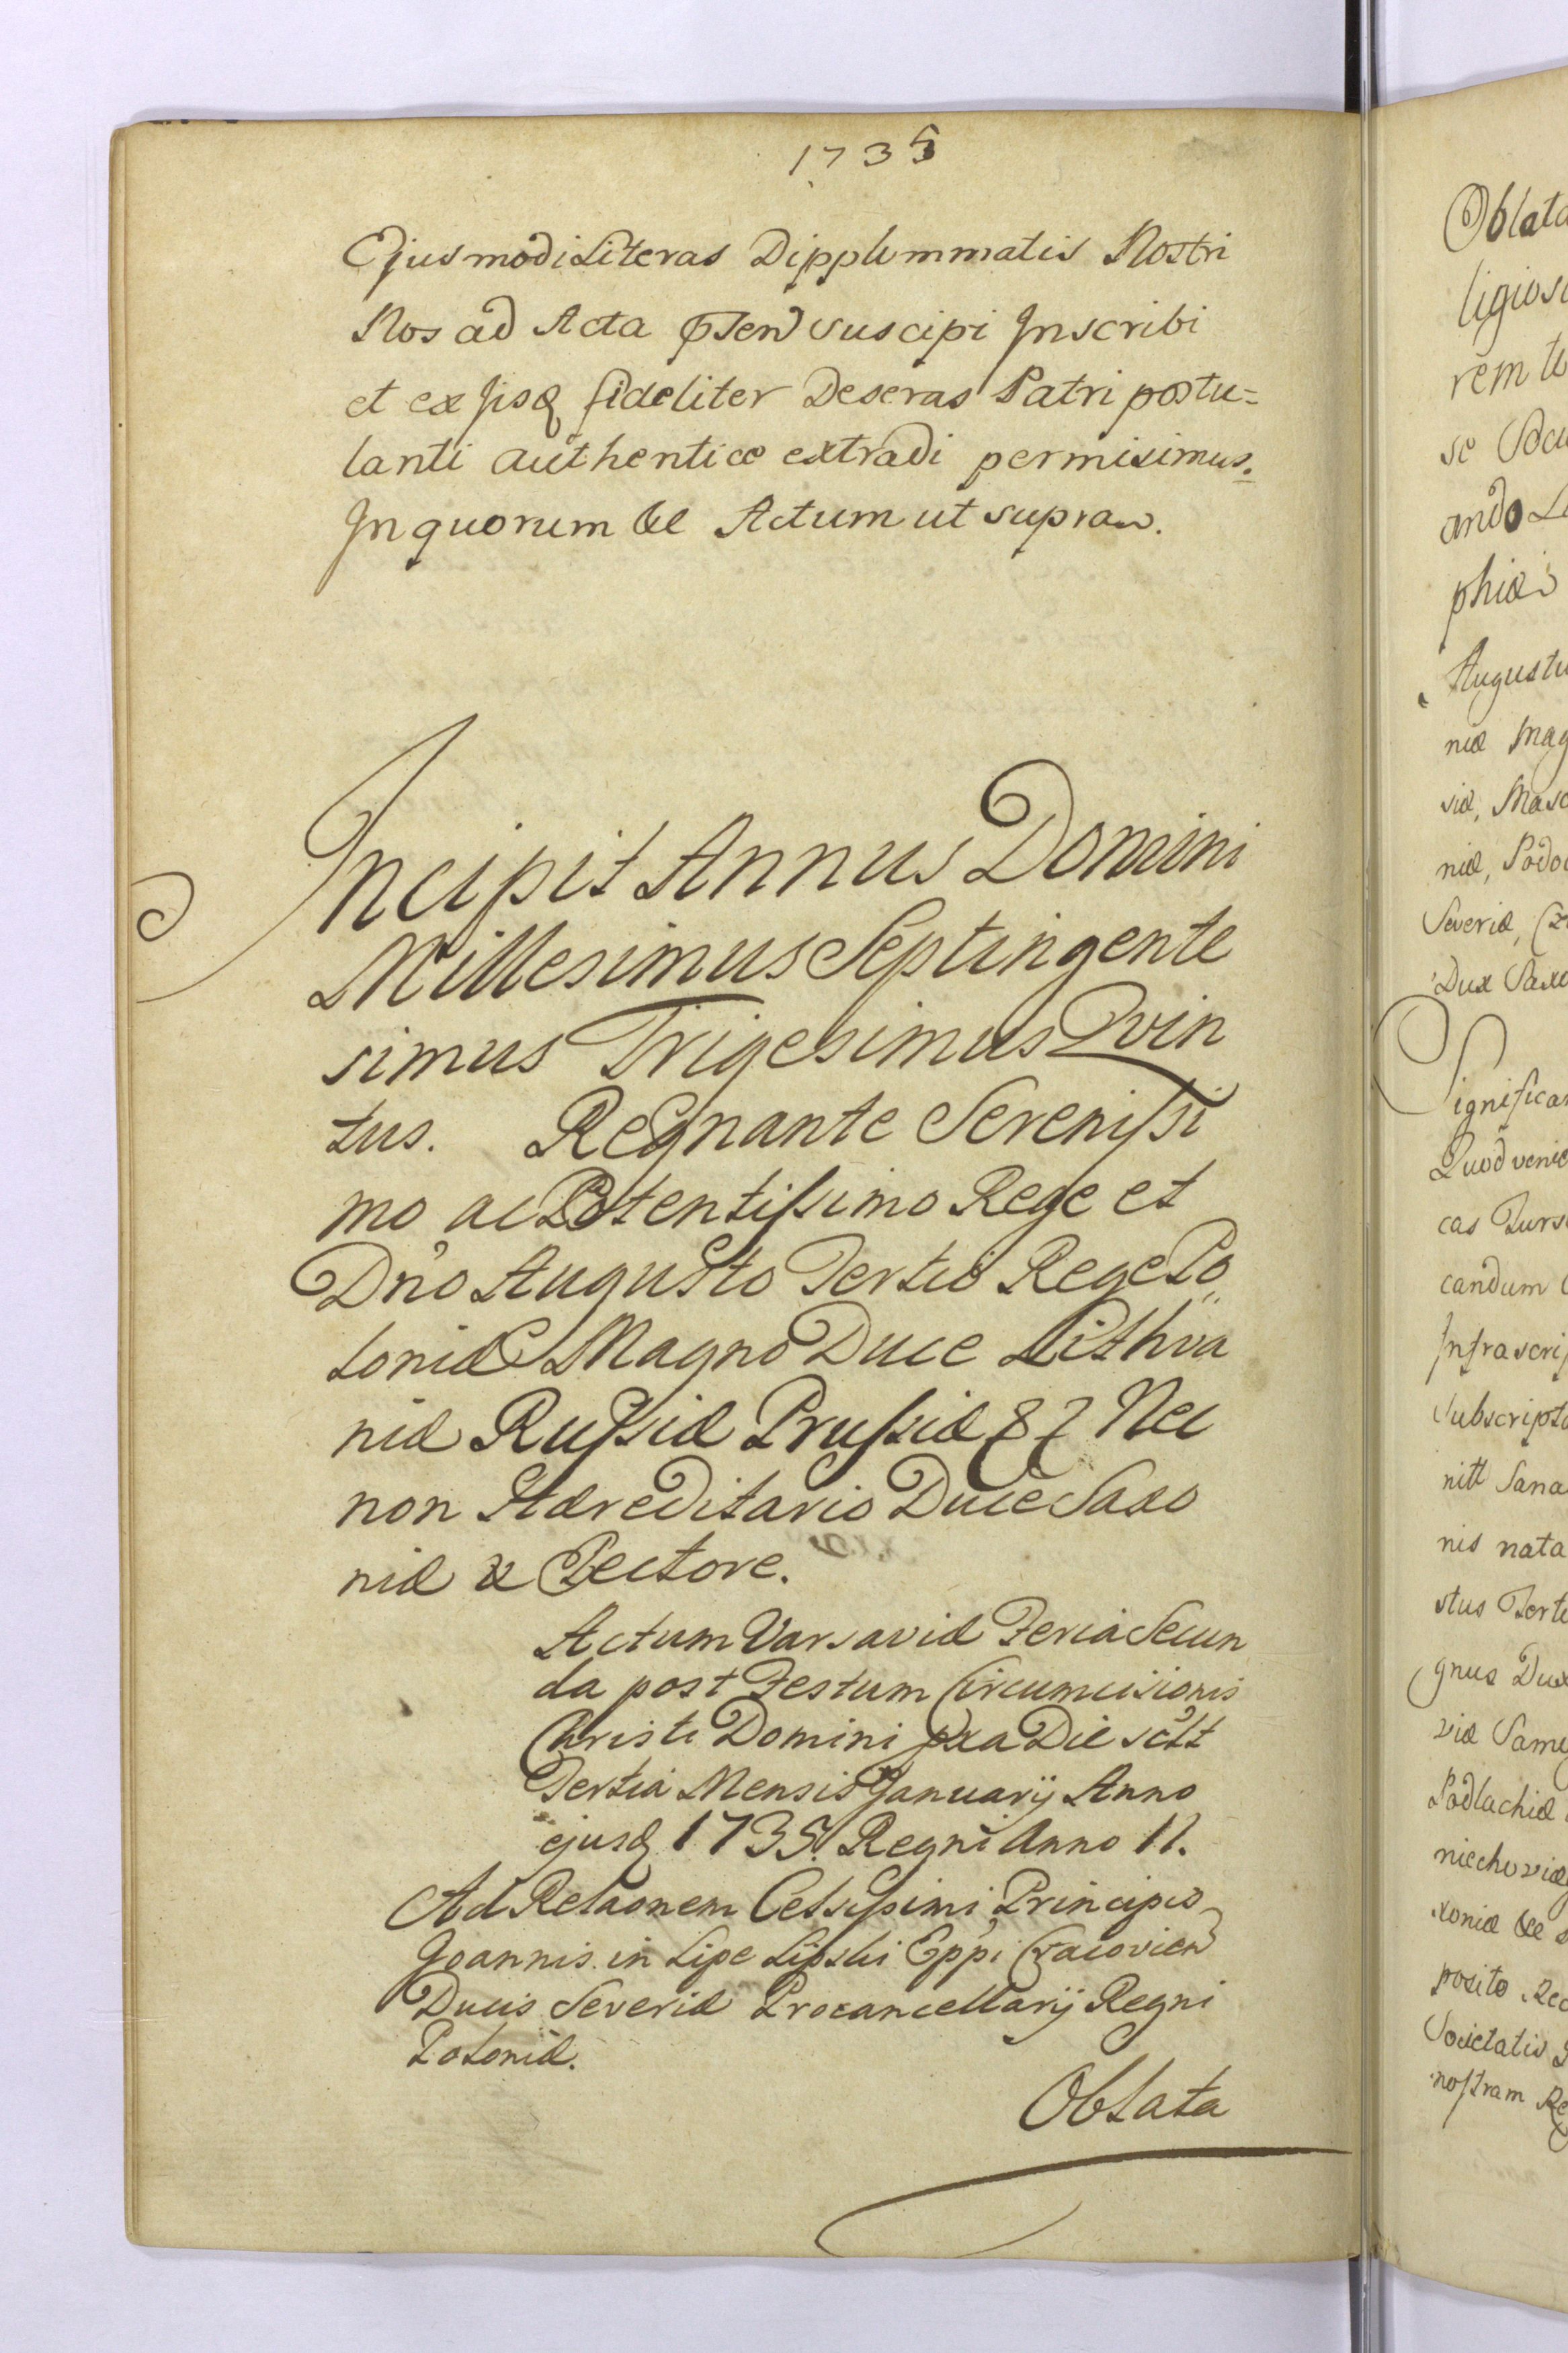 1735
Ejusmodi Literas Dipplommatis Nostri
Nos ad Acta pñsen suscipi Inscribi
et ex Iisq fideliter Deseras Patri postu=
lanti authentice extradi permisimus.
In quorum &c Actum ut supra.
Incipit Annus Domini
Millesimus Septingente
simus Trigesimus Qvin
tus. Regnante Serenissi
mo ac Potentissimo Rege et
Dno Augusto Tertio Rege Po„
loniæ Magno Duce Lithva
niæ Russiæ Prussiæ && Nec
non Hæreditario Duce Saxo
niæ & Electore.
Actum Varsaviæ Feria Secun
da post Festum Circumcisionis
Christi Domini pxa Die sclt
Tertia Mensis Januarij Anno
ejusq 1735. Regni Anno II.
Ad Relaonem Celsissimi Principis
Joannis in Lipe Lipski Eppi Cracovien
Ducis Severiæ Procancellarij Regni
Poloniæ.
Oblata
Oblata
ligios
rem
se
ando
phiæ
Augustu
niæ Mag
siæ, Maso
niæ, Podo
Severiæ,
Dux Saxo
Significa
Quod venie
cas
candum
Infrascrip
Subscripto
nitt Sana
nis nata
stus Terti
gnus Dux
viæ Samo
Podlachiæ
niechoviæ
xoniæ &c
posito
Societatis
nostram Re